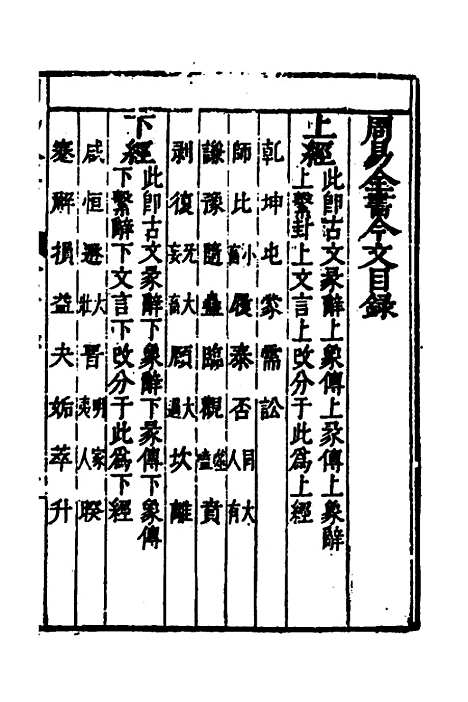 周易全書今文目錄
上經
此卽古文彖辭上象傳上彖傳上象辭
上繫卦上文言上改分于此爲上經
乾 坤 屯 蒙 需 訟
師 比 小畜 履 泰 否 同人 大有
謙 豫 隨 蠱 臨 觀 噬嗑 賁
剥 復 无妄 大畜 頤 大過 坎 離
下經
此卽古文彖辭下象辭下彖傳下象傳
下繫辭下文言下改分于此爲下經
咸 恒 遯 大壯 晋 明夷 家人 睽
蹇 解 損 益 夬 姤 萃 升